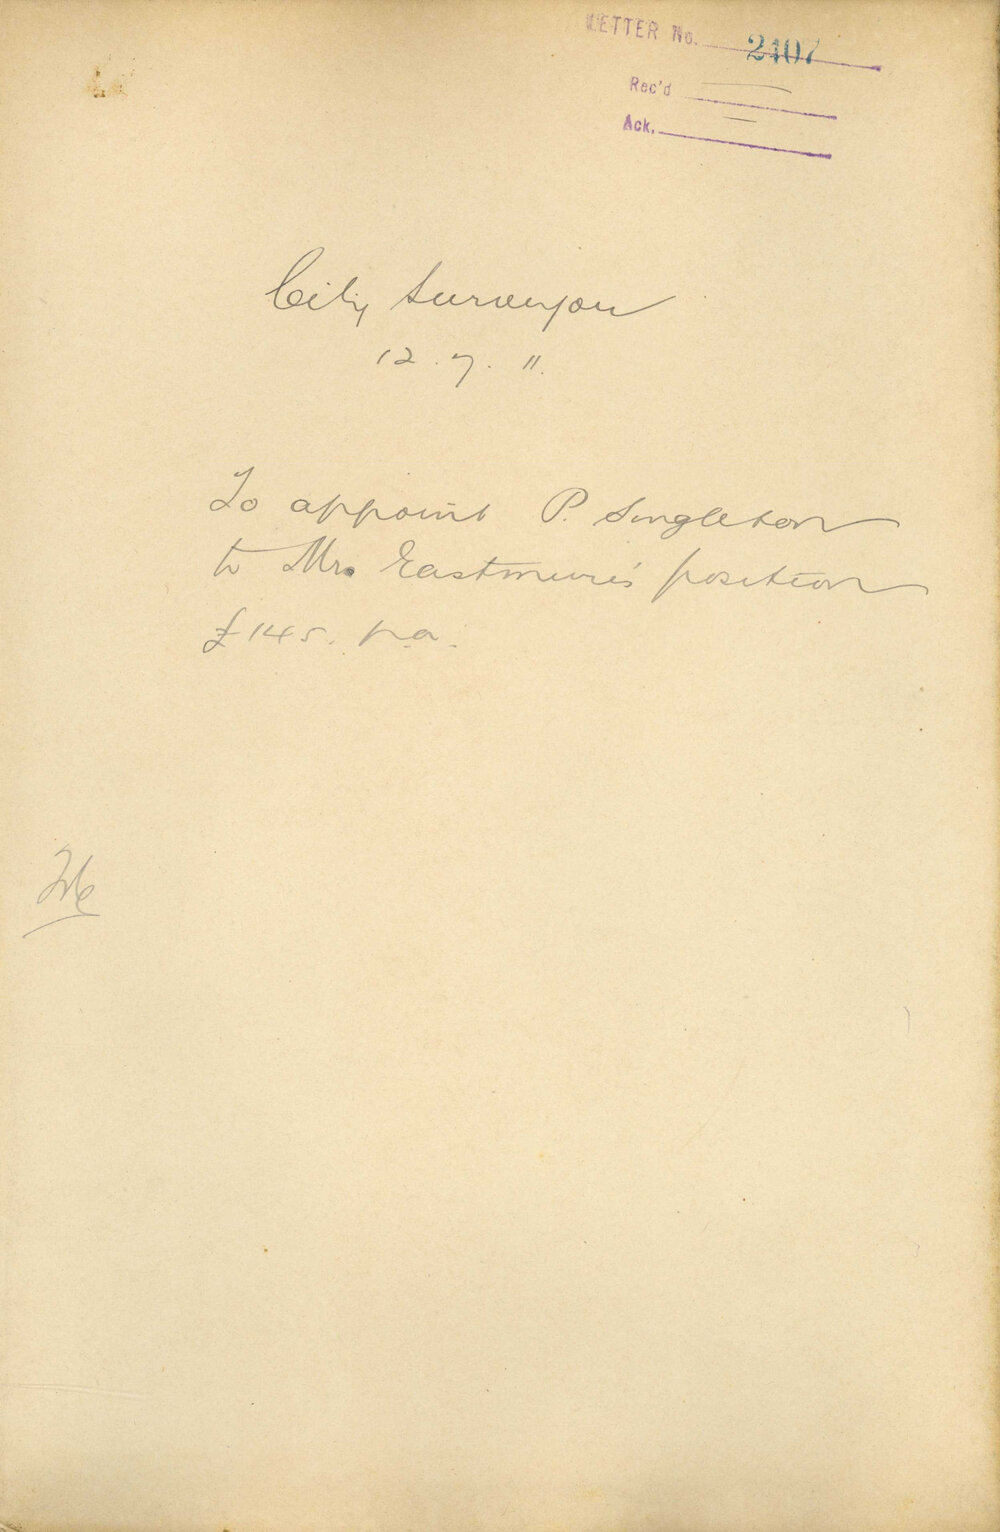 LETTER No. 2407
Rec'd
Ack.
City Surveyor
12.7.11.
To appoint P. Singleton
to Mr. Eastmure's position
£145. p.a.